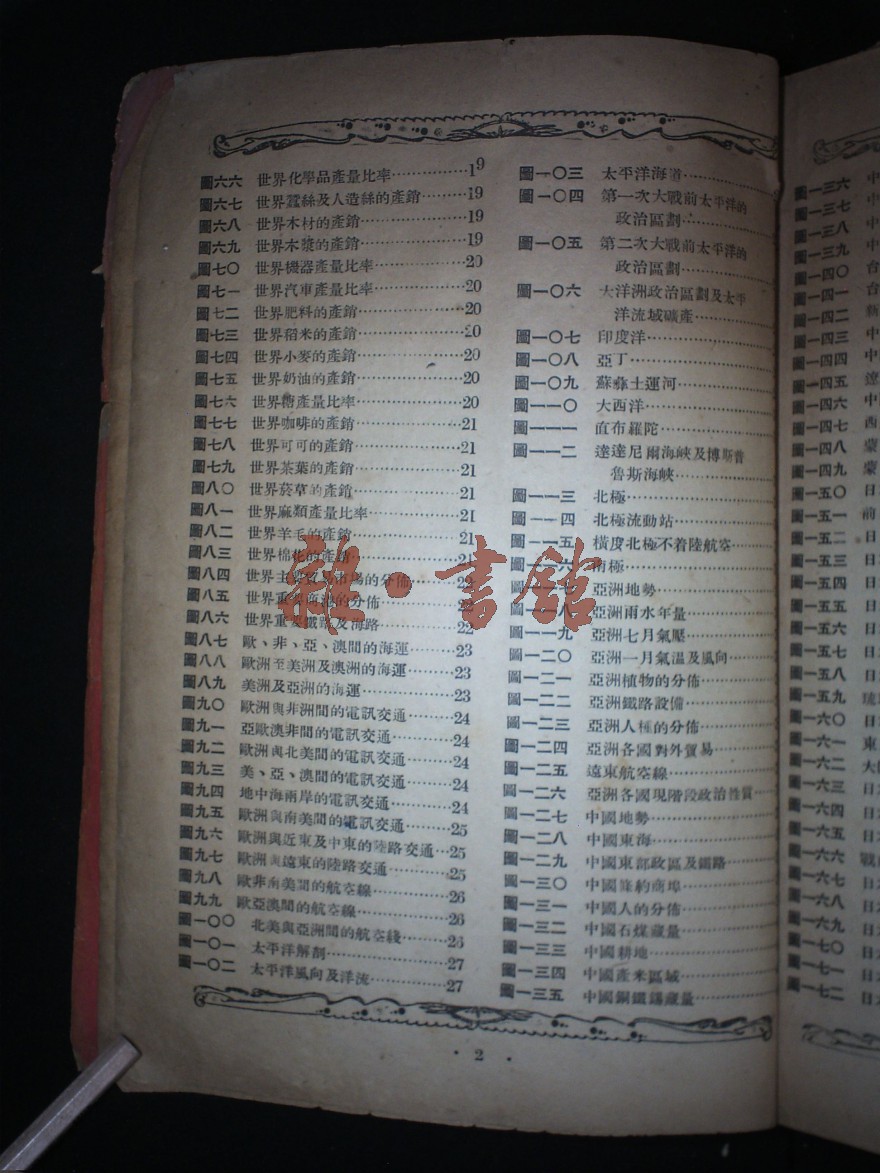 圖六六 世界化學品產量比率……………19
圖六七 世界蠶絲及人造絲的產銷………19
圖六八 世界木材的產銷………………19
圖六九 世界木漿的產銷………………19
圖七〇 世界機器產量比率……………20
圖七一 世界汽車產量比率……………20
圖七二 世界肥料的產銷………………20
圖七三 世界稻米的產銷………………20
圖七四 世界小麥的產銷………………20
圖七五 世界奶油的產銷………………20
圖七六 世界糖產量比率………………20
圖七七 世界咖啡的產銷………………21
圖七八 世界可可的產銷………………21
圖七九 世界茶葉的產銷………………21
圖八〇 世界菸草的產銷………………21
圖八一 世界麻類產量比率……………21
圖八二 世界羊毛的產銷………………21
圖八三 世界棉花的產銷………………21
圖八四 世界主要貿易市場的分佈……22
圖八五 世界重要商港的分佈…………22
圖八六 世界重要鐵路及海路…………22
圖八七 歐、非、亞、澳間的海運……23
圖八八 歐洲至美洲及澳洲的海運……23
圖八九 美洲及亞洲的海運……………23
圖九〇 歐洲與非洲間的電訊交通……24
圖九一 亞歐澳非間的電訊交通………24
圖九二 歐洲與北美間的電訊交通……24
圖九三 美、亞、澳間的電訊交通……24
圖九四 地中海兩岸的電訊交通………24
圖九五 歐洲與南美間的電訊交通……25
圖九六 歐洲與近東及中東的陸路交通…25
圖九七 歐洲與遠東的陸路交通………25
圖九八 歐非南美間的航空線…………26
圖九九 歐亞澳間的航空線……………26
圖一〇〇 北美與亞洲間的航空綫……26
圖一〇一 太平洋解剖…………………27
圖一〇二 太平洋風向及洋流…………27
圖一〇三 太平洋海道……………
圖一〇四 第一次大戰前太平洋的
政治區劃……………
圖一〇五 第二次大戰前太平洋的
政治區劃……………
圖一〇六 大洋洲政治區劃及太平
洋流域礦產…………
圖一〇七 印度洋……………
圖一〇八 亞丁……………
圖一〇九 蘇彝士運河……………
圖一一〇 大西洋……………
圖一一一 直布羅陀……………
圖一一二 達達尼爾海峽及博斯普
魯斯海峽……………
圖一一三 北極……………
圖一一四 北極流動站……………
圖一一五 橫度北極不着陸航空……
圖一一六 南極……………
圖一一七 亞洲地勢……………
圖一一八 亞洲雨水年量……………
圖一一九 亞洲七月氣壓……………
圖一二〇 亞洲一月氣溫及風向……
圖一二一 亞洲植物的分佈…………
圖一二二 亞洲鐵路設備……………
圖一二三 亞洲人種的分佈…………
圖一二四 亞洲各國對外貿易………
圖一二五 遠東航空線……………
圖一二六 亞洲各國現階段政治性質…
圖一二七 中國地勢……………
圖一二八 中國東海……………
圖一二九 中國東部政區及鐵路……
圖一三〇 中國條約商埠……………
圖一三一 中國人的分佈……………
圖一三二 中國石煤藏量……………
圖一三三 中國耕地……………
圖一三四 中國產米區域……………
圖一三五 中國銅鐵錫藏量…………
· 2 ·
圖一三六 中
圖一三七 中
圖一三八 中
圖一三九 中
圖一四〇 台
圖一四一 台
圖一四二 新
圖一四三 中
圖一四四 中
圖一四五 遼
圖一四六 中
圖一四七 西
圖一四八 蒙
圖一四九 蒙
圖一五〇 日
圖一五一 前
圖一五二 日
圖一五三 日
圖一五四 日
圖一五五 日
圖一五六 日
圖一五七 日
圖一五八 日
圖一五九 琉
圖一六〇 日
圖一六一 東
圖一六二 大
圖一六三 日
圖一六四 日
圖一六五 日
圖一六六 戰
圖一六七 日
圖一六八 日
圖一六九 日
圖一七〇 日
圖一七一 日
圖一七二 日
雜·書館